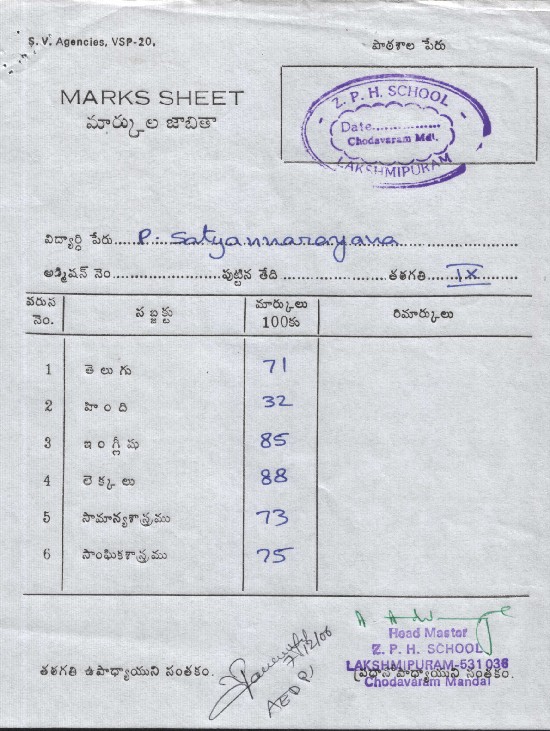 S. V. Agencies, VSP-20.
పాఠశాల పేరు
MARKS SHEET
మార్కుల జాబితా
Z. P. H. SCHOOL
Date...............
Chodavaram Mdl.
LAKSHMIPURAM
విద్యార్థి పేరు.....P. Satyannarayana.....
అడ్మిషన్ నెం.....................పుట్టిన తేది.....................తరగతి.....IX.....
వరుస నెం. సబ్జక్టు మార్కులు 100కు రిమార్కులు
1 తెలుగు 71
2 హింది 32
3 ఇంగ్లీషు 85
4 లెక్కలు 88
5 సామాన్యశాస్త్రము 73
6 సాంఘికశాస్త్రము 75
Head Master
Z. P. H. SCHOOL
LAKSHMIPURAM-531036
Chodavaram Mandal
తరగతి ఉపాధ్యాయుని సంతకం.
ప్రధానోపాధ్యాయుని సంతకం.